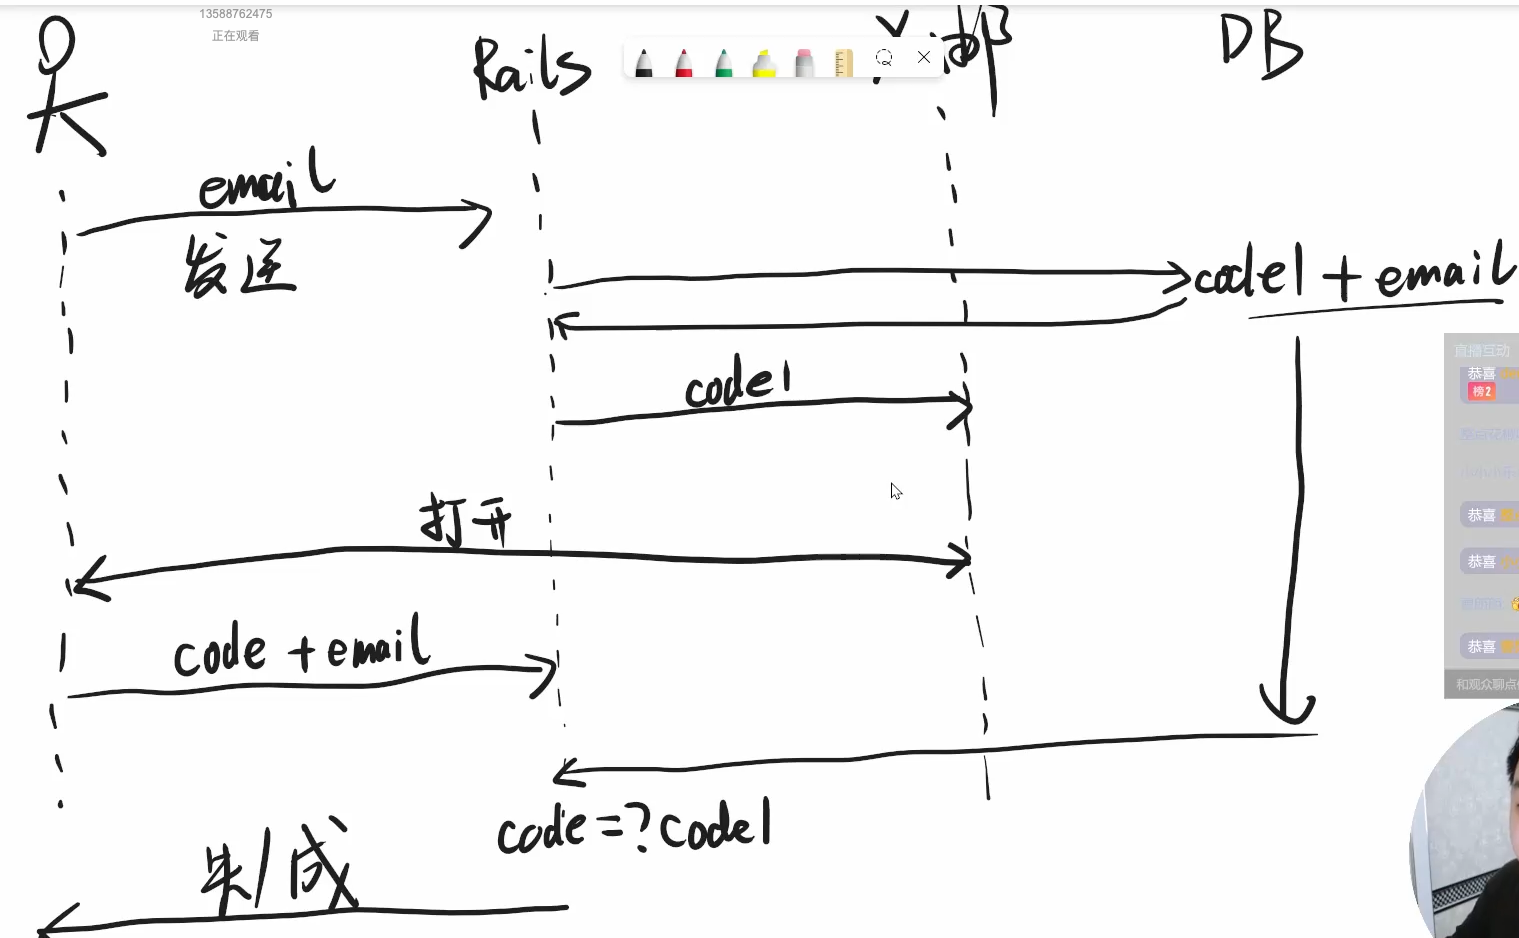 13588762475
正在观看
Rails
DB
email
发送
code1 + email
code1
打开
code + email
code =? code1
失/成
直播互动
恭喜
榜2
恭喜
恭喜
恭喜
和观众聊点